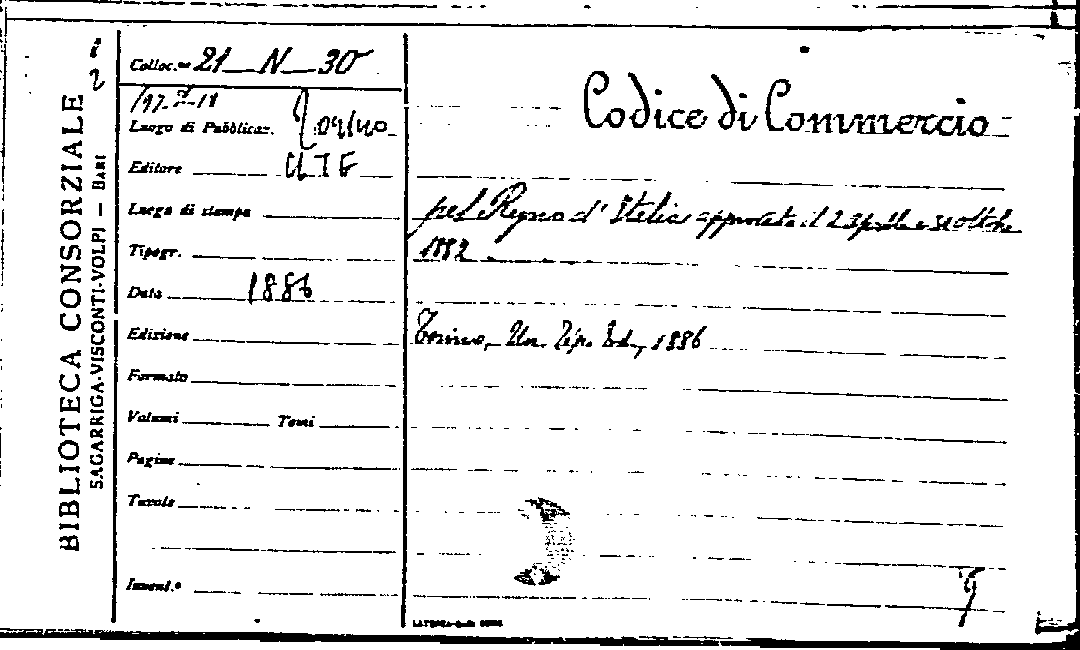 BIBLIOTECA CONSORZIALE
SAGARRIGA-VISCONTI-VOLPI — BARI
Colloc.ne 21 N 30
197-I-18
Luogo di Pubblicaz. Torino
Editore UTE
Luogo di stampa
Tipogr.
Data 1886
Edizione
Formato
Volumi Tomi
Pagine
Tavole
Invent.º
Codice di Commercio
pel Regno d'Italia approvato il 2 aprile e 31 ottobre
1882
Torino, Un. Tip. Ed., 1886